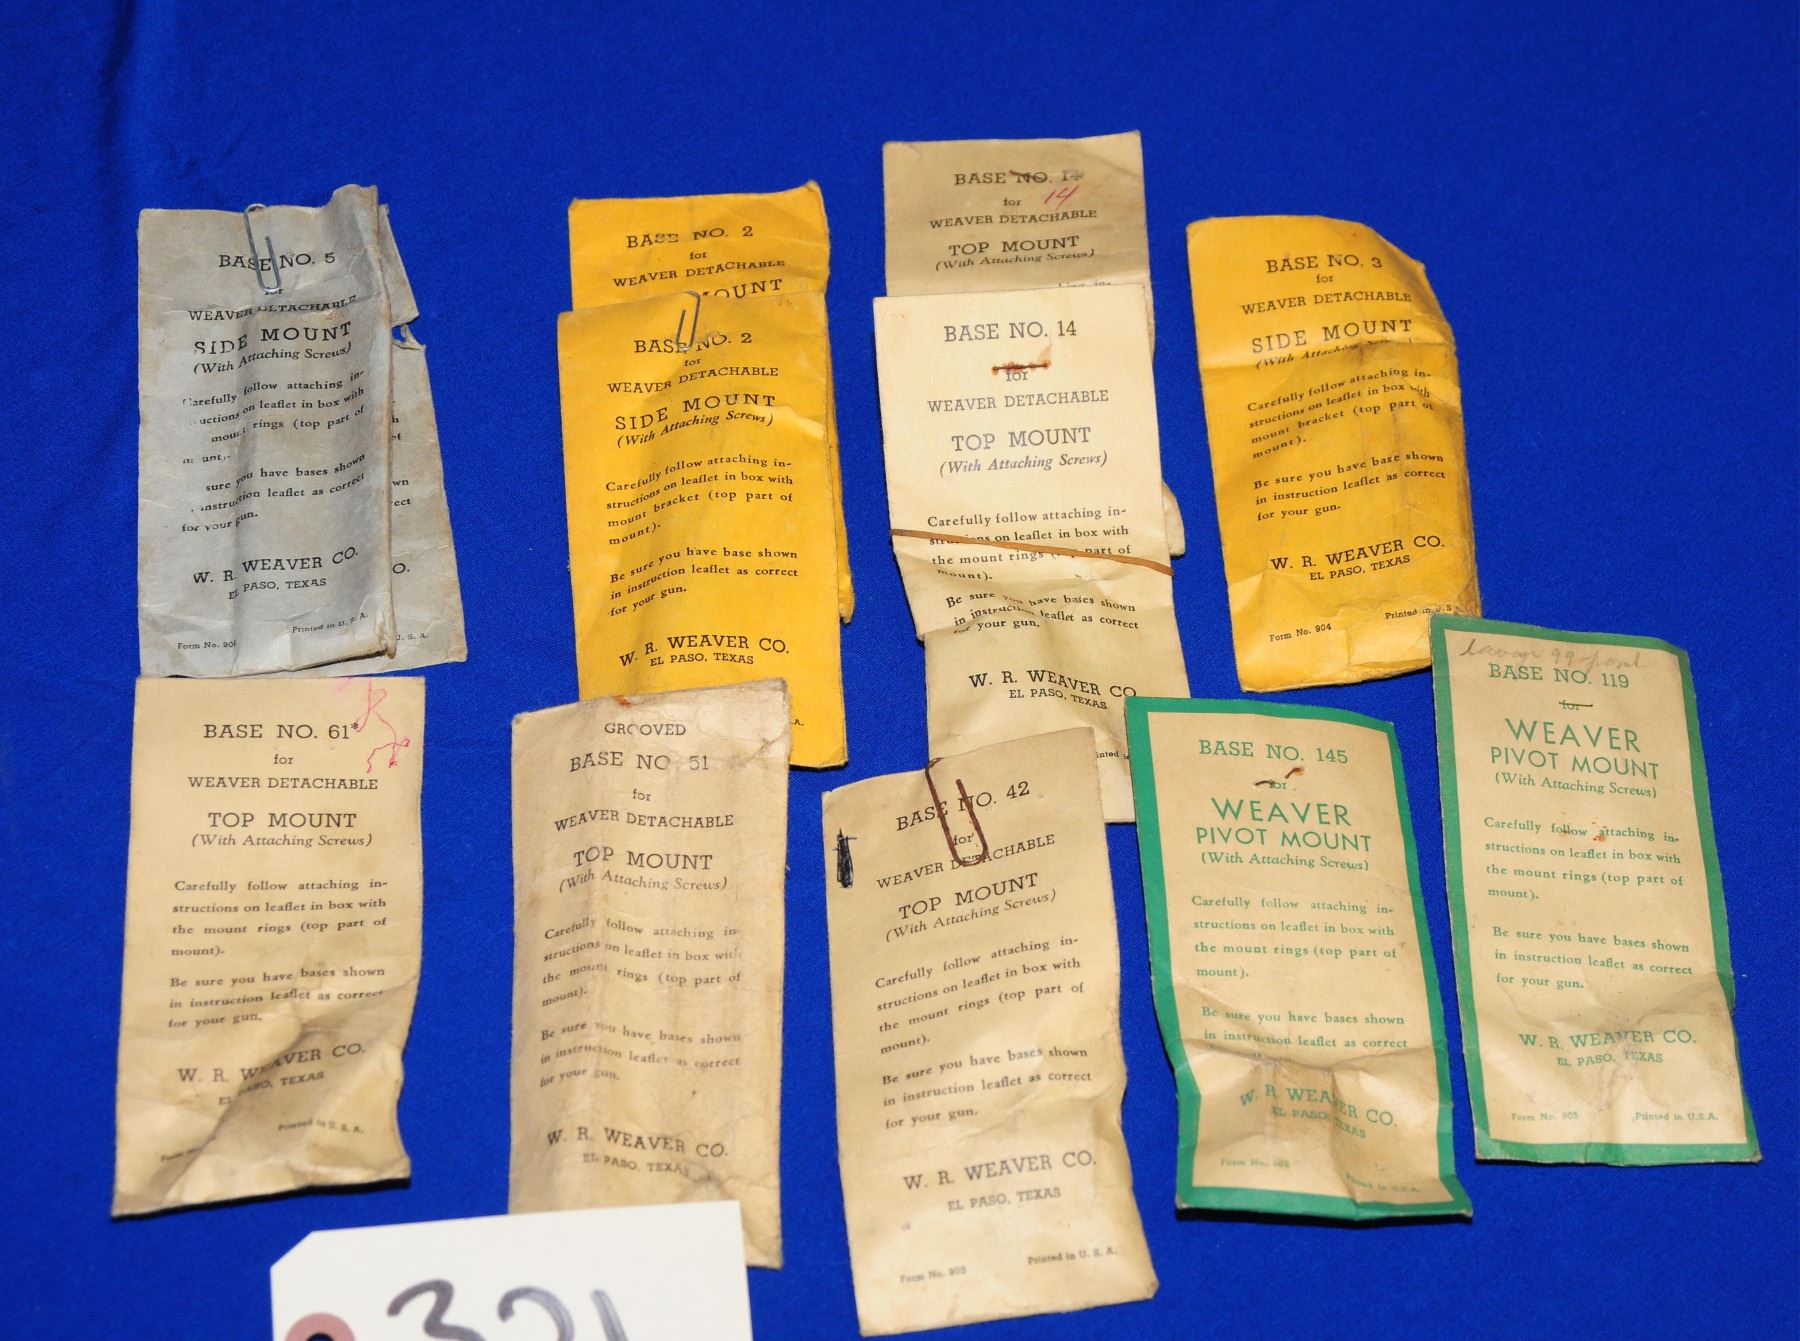 BASE NO. 5
for
WEAVER DETACHABLE
SIDE MOUNT
(With Attaching Screws)
Carefully follow attaching in-
uctions on leaflet in box with
mount rings (top part of
unt).
sure you have bases shown
instruction leaflet as correct
for your gun.
W. R. WEAVER CO.
EL PASO, TEXAS
Form No. Printed in U. S. A.
h
of
wn
ect
O.
U. S. A.
BASE NO. 2
for
WEAVER DETACHABLE
MOUNT
BASE NO. 2
for
WEAVER DETACHABLE
SIDE MOUNT
(With Attaching Screws)
Carefully follow attaching in-
structions on leaflet in box with
mount bracket (top part of
mount).
Be sure you have base shown
in instruction leaflet as correct
for your gun.
W. R. WEAVER CO.
EL PASO, TEXAS
.A.
BASE NO. 14
14
for
WEAVER DETACHABLE
TOP MOUNT
(With Attaching Screws)
BASE NO. 14
for
WEAVER DETACHABLE
TOP MOUNT
(With Attaching Screws)
Carefully follow attaching in-
structions on leaflet in box with
the mount rings (top part of
mount).
Be sure you have bases shown
in instruction leaflet as correct
for your gun.
W. R. WEAVER CO.
EL PASO, TEXAS
BASE NO. 3
for
WEAVER DETACHABLE
SIDE MOUNT
(With Attaching Screws)
Carefully follow attaching in-
structions on leaflet in box with
mount bracket (top part of
mount).
Be sure you have base shown
in instruction leaflet as correct
for your gun.
W. R. WEAVER CO.
EL PASO, TEXAS
Form No. 904 Printed in U.S.
BASE NO. 61*
for
WEAVER DETACHABLE
TOP MOUNT
(With Attaching Screws)
Carefully follow attaching in-
structions on leaflet in box with
the mount rings (top part of
mount).
Be sure you have bases shown
in instruction leaflet as correct
for your gun.
W. R. WEAVER CO.
EL PASO, TEXAS
Form Printed in U. S. A.
GROOVED
BASE NO 51
for
WEAVER DETACHABLE
TOP MOUNT
(With Attaching Screws)
Carefully follow attaching in-
structions on leaflet in box with
the mount rings (top part of
mount).
Be sure you have bases shown
in instruction leaflet as correct
for your gun.
W. R. WEAVER CO.
EL PASO, TEXAS
BASE NO. 42
for
WEAVER DETACHABLE
TOP MOUNT
(With Attaching Screws)
Carefully follow attaching in-
structions on leaflet in box with
the mount rings (top part of
mount).
Be sure you have bases shown
in instruction leaflet as correct
for your gun.
W. R. WEAVER CO.
EL PASO, TEXAS
Form No. 903 Printed in U. S. A.
BASE NO. 145
for
WEAVER
PIVOT MOUNT
(With Attaching Screws)
Carefully follow attaching in-
structions on leaflet in box with
the mount rings (top part of
mount).
Be sure you have bases shown
in instruction leaflet as correct
W. R. WEAVER CO.
EL PASO, TEXAS
Form No. 905 Printed in U.S.A.
BASE NO. 119
for
WEAVER
PIVOT MOUNT
(With Attaching Screws)
Carefully follow attaching in-
structions on leaflet in box with
the mount rings (top part of
mount).
Be sure you have bases shown
in instruction leaflet as correct
for your gun.
W. R. WEAVER CO.
EL PASO, TEXAS
Form No. 905 Printed in U.S.A.
321